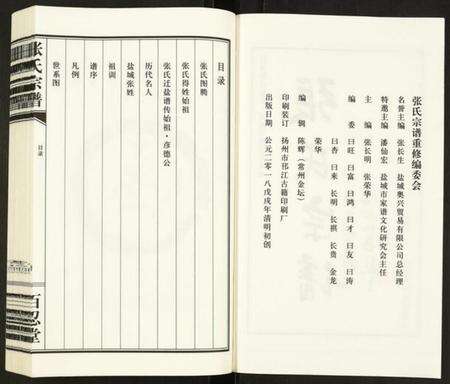 张氏宗谱重修编委会
名誉主编 张长生 盐城奥兴贸易有限公司总经理
特邀主编 潘仙宏 盐城市家谱文化研究会主任
主编 张长明 张荣华
编委 曰旺 曰富 曰鸿 曰才 曰友 曰涛
曰杏 曰来 长明 长祺 长贵 金龙
荣华
编辑 陈辉（常州金坛）
印刷装订 扬州市邗江古籍印刷厂
出版日期 公元二零一八戊戌年清明初创
张氏宗谱
目录
百忍堂
目录
张氏图腾
张氏得姓始祖
张氏迁盐谱传始祖·彦德公
历代名人
盐城张姓
祖训
谱序
凡例
世系图